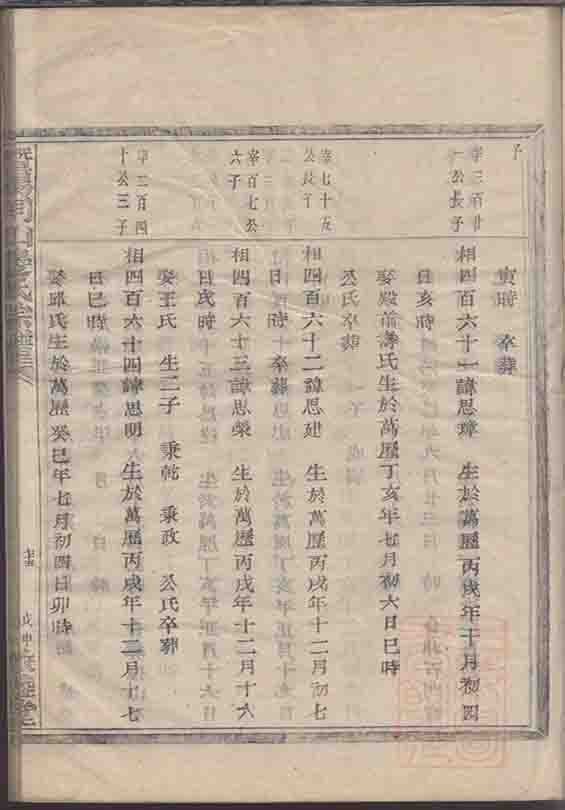 子
寅時 卒葬
宰三百廿
一公長子
相四百六十一諱思璋 生於萬歷丙戌年十月初四
日亥時
娶殿前壽氏生於萬歷丁亥年七月初六日巳時
公氏卒葬
宰七十五
公長子
相四百六十二諱思廷 生於萬歷丙戌年十二月初七
日 時 卒葬
宰百七公
六子
相四百六十三諱思榮 生於萬歷丙戌年十二月十六
日亥時
娶王氏 生二子 秉乾 秉政 公氏卒葬
宰三百四
十公三子
相四百六十四諱思明 生於萬歷丙戌年十二月十七
日巳時
娶邱氏生於萬歷癸巳年七月初四日卯時
戊申